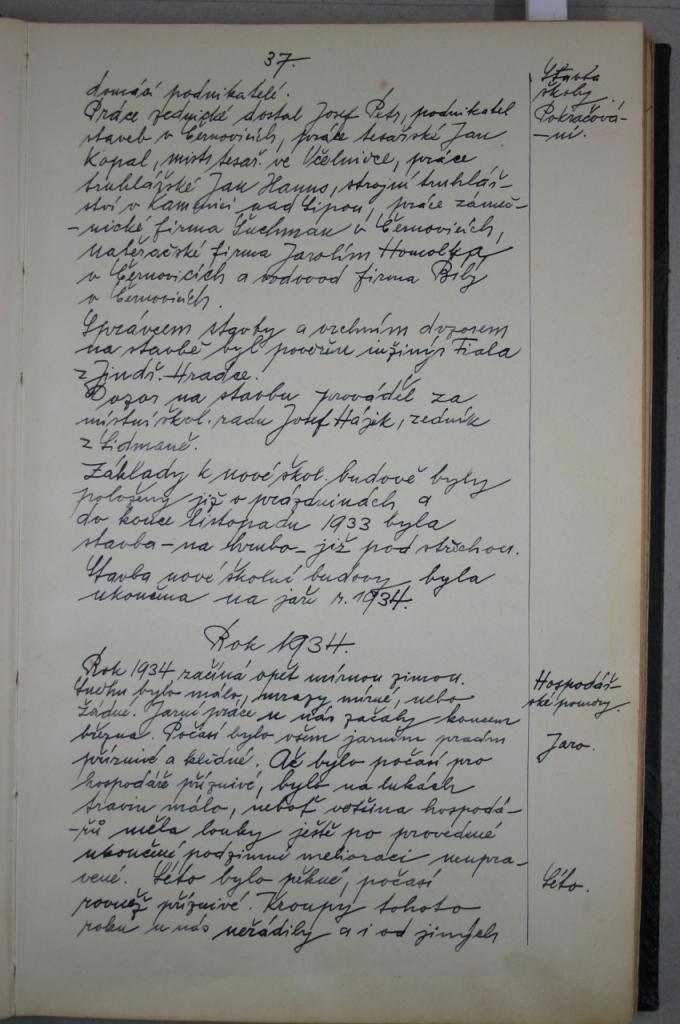 37.
domácí podnikatelé.
Práce zednické dostal Josef Petr, podnikatel
staveb v Černovicích, práce tesařské Jan
Kopal, mistr tesař. ve Včelničce, práce
truhlářské Jan Hanus, strojní truhlář-
ství v Kamenici nad Lipou, práce zámeč-
-nické firma Suchman v Černovicích,
natěračské firma Jarolím Homolka,
v Černovicích a vodovod firma Bílý
v Černovicích.
Správcem stavby a vrchním dozorem
na stavbě byl pověřen inžinýr Fiala
z Jindř. Hradce.
Dozor na stavbu prováděl za
místní škol. radu Josef Hájek, zedník
z Lidmaně.
Základy k nové škol. budově byly
položeny již o prázdninách a
do konce listopadu 1933 byla
stavba - na hrubo - již pod střechou.
Stavba nové školní budovy byla
ukončena na jaře r. 1934.
Rok 1934.
Rok 1934 začíná opět mírnou zimou.
Sněhu bylo málo, mrazy mírné, nebo
žádné. Jarní práce u nás začaly koncem
března. Počasí bylo všem jarním pracím
příznivé a klidné. Ač bylo počasí pro
hospodáře příznivé, bylo na lukách
travin málo, neboť většina hospodá-
-řů měla louky ještě po provedené
ukončené podzimní melioraci neupra-
vené. Léto bylo pěkné, počasí
rovněž příznivé. Kroupy tohoto
roku u nás neřádily a i od jiných
Stavba
školy.
Pokračová-
-ní.
Hospodář-
ské poměry.
Jaro.
Léto.